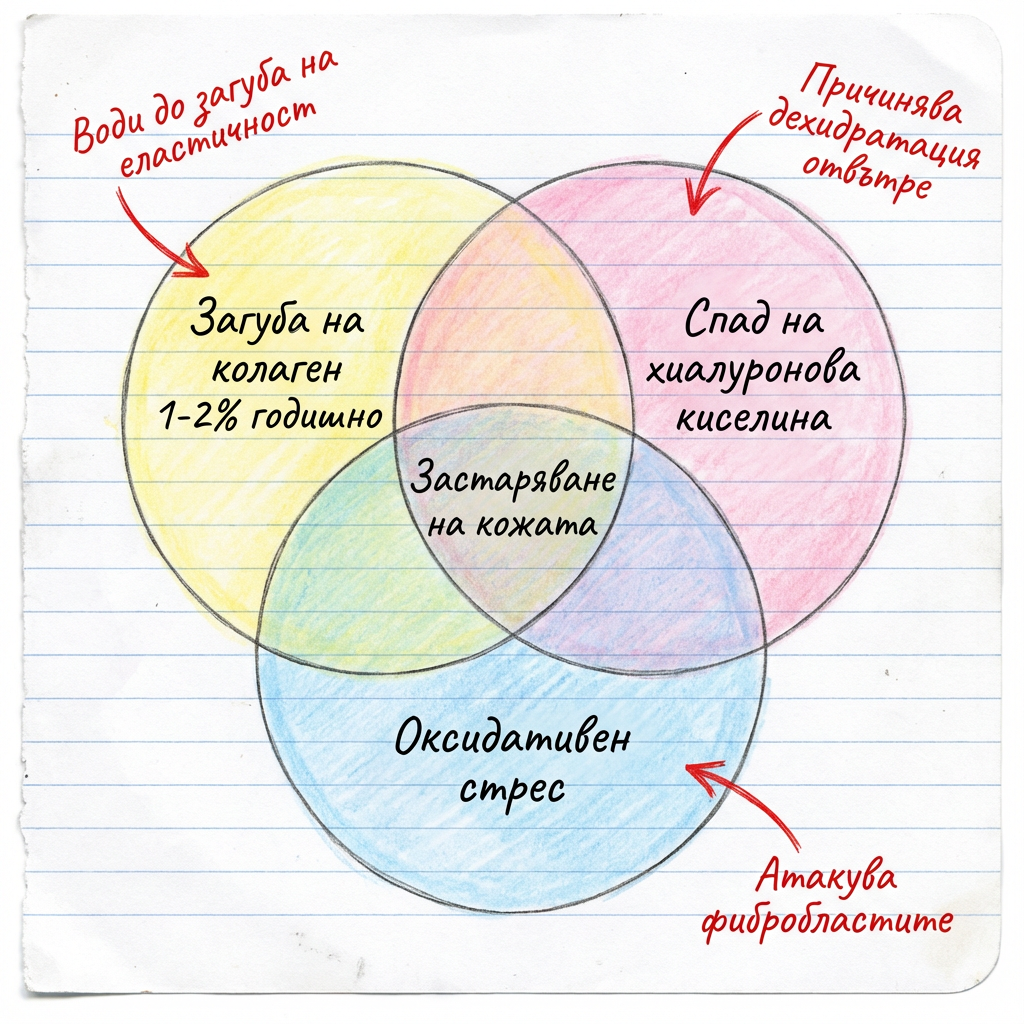 Води до загуба на
еластичност
Причинява
дехидратация
отвътре
Загуба на
колаген
1-2% годишно
Спад на
хиалуронова
киселина
Застаряване
на кожата
Оксидативен
стрес
Атакува
фибробластите